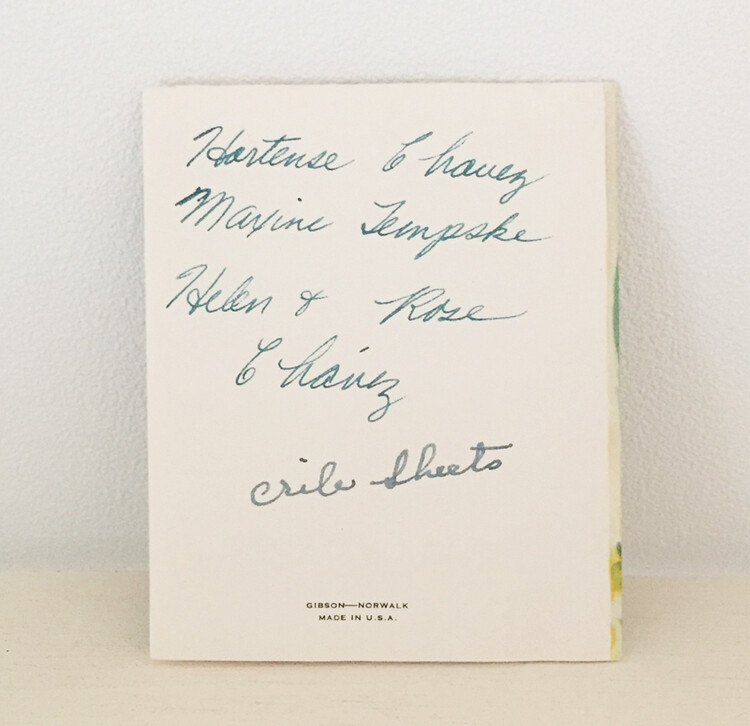 Hortense Chavez
Maxine Tempske
Helen & Rose
Chávez
crib sheets
GIBSON—NORWALK
MADE IN U.S.A.